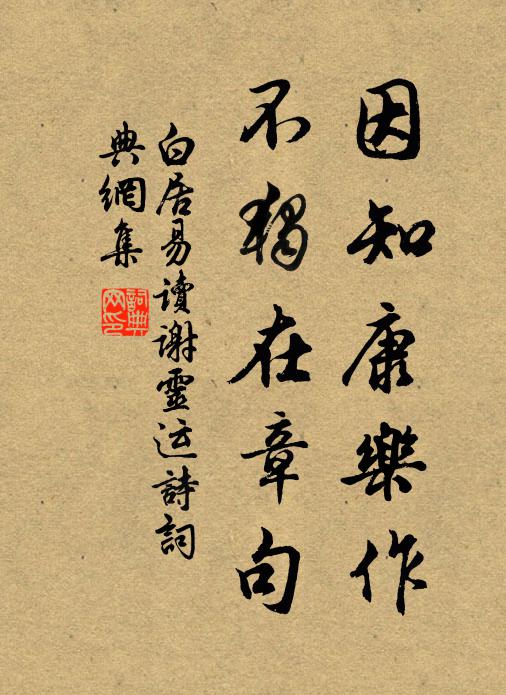 因知康樂作
不獨在章句
白居易讀謝靈运詩詞
典網集
詞典
网印